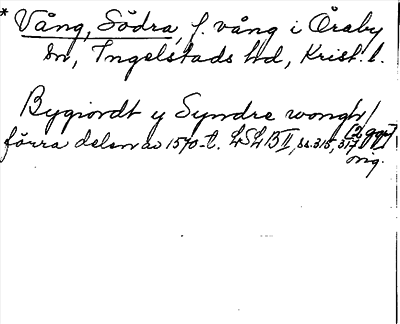 * Vång, Södra, f. vång i Öraby
sn, Ingelstads hd, Krist. l.
Bygiordt y Syndre wongh/
[2 ggr]
förra delen av 1570-t. LSLB II, ss. 315, 317
orig.